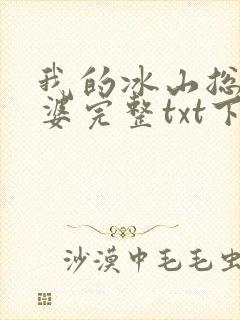 我的冰山总
婆完整txt下
沙漠中毛毛虫